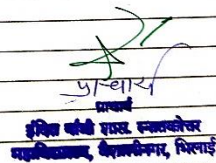 प्राचार्य
प्राचार्य
इंदिरा गांधी शास. स्नातकोत्तर
महाविद्यालय, वैशालीनगर, भिलाई